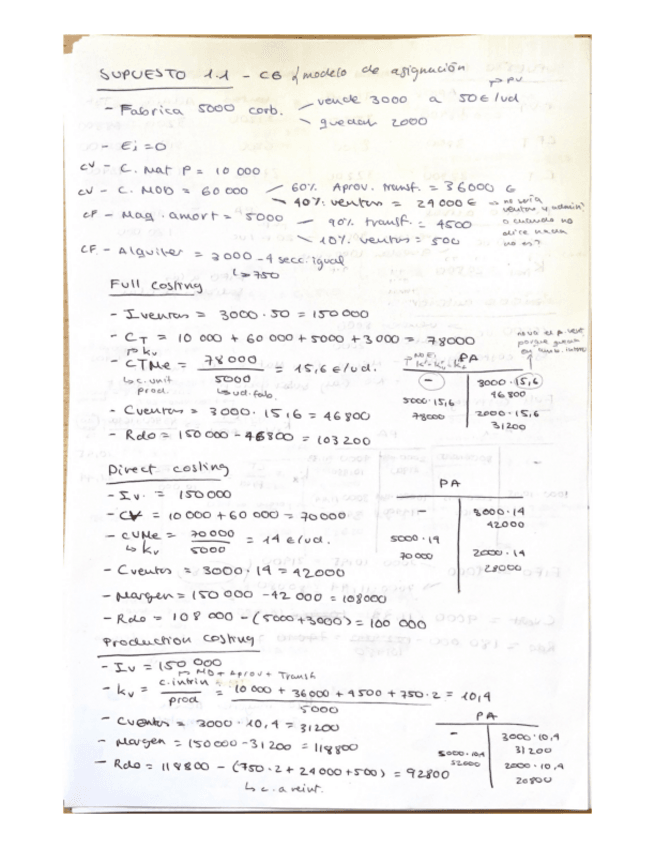 SUPUESTO 1.1 - CB y modelo de asignación
→ PV
- Fabrica 5000 corb. vende 3000 a 50 €/ud
quedan 2000
- Ei = 0
CV - C. Mat P = 10 000
CV - C. MOD = 60 000 60% Aprov. transf. = 36000 €
40% ventas = 24 000 €
CF - Maq. amort = 5000 90% transf. = 4500
10% ventas = 500
CF - Alquiler = 3000 - 4 secc. igual
↳ 750
Full costing
- Iventas = 3000 · 50 = 150 000
- CT = 10 000 + 60 000 + 5000 + 3000 = 78000
→ kv
- CTMe = 78 000 / 5000 = 15,6 €/ud.
↳ c. unit prod. ↳ ud. fab.
- Cventas = 3000 · 15,6 = 46 800
- Rdo = 150 000 - 46 800 = 103 200
PA
-
3000 · 15,6
46 800
5000 · 15,6
78000
2000 · 15,6
31200
Direct costing
- Iv. = 150 000
- CV = 10 000 + 60 000 = 70 000
- CVMe = 70 000 / 5000 = 14 €/ud.
↳ kv
- Cventas = 3000 · 14 = 42000
- Margen = 150 000 - 42 000 = 108000
- Rdo = 108 000 - (5000 + 3000) = 100 000
PA
-
3000 · 14
42000
5000 · 14
70 000
2000 · 14
28000
Production costing
- Iv = 150 000
→ MD + Aprov + Transf
- kv = c. intrin / prod = 10 000 + 36 000 + 4500 + 750 · 2 / 5000 = 10,4
- Cventas = 3000 · 10,4 = 31200
- Margen = 150 000 - 31 200 = 118 800
- Rdo = 118 800 - (750 · 2 + 24 000 + 500) = 92800
↳ c. a reint.
PA
-
3000 · 10,4
31 200
5000 · 10,4
52000
2000 · 10,4
20800